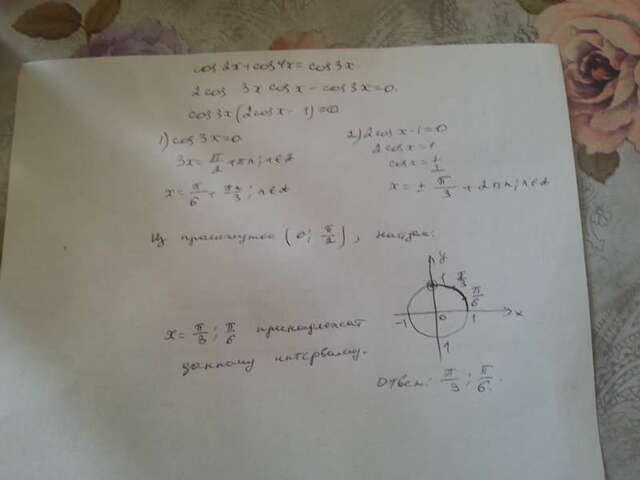 cos 2x + cos 4x = cos 3x
2 cos 3x cos x - cos 3x = 0
cos 3x (2 cos x - 1) = 0
1) cos 3x = 0
3x = π/2 + πn; n∈Z
x = π/6 + πn/3; n∈Z
2) 2 cos x - 1 = 0
2 cos x = 1
cos x = 1/2
x = ± π/3 + 2πn; n∈Z
Из промежутка (0; π/2), найдем:
y
1 π/3
π/6
-1 0 1 x
1
x = π/3; π/6 принадлежат
данному интервалу.
Ответ: π/3; π/6.